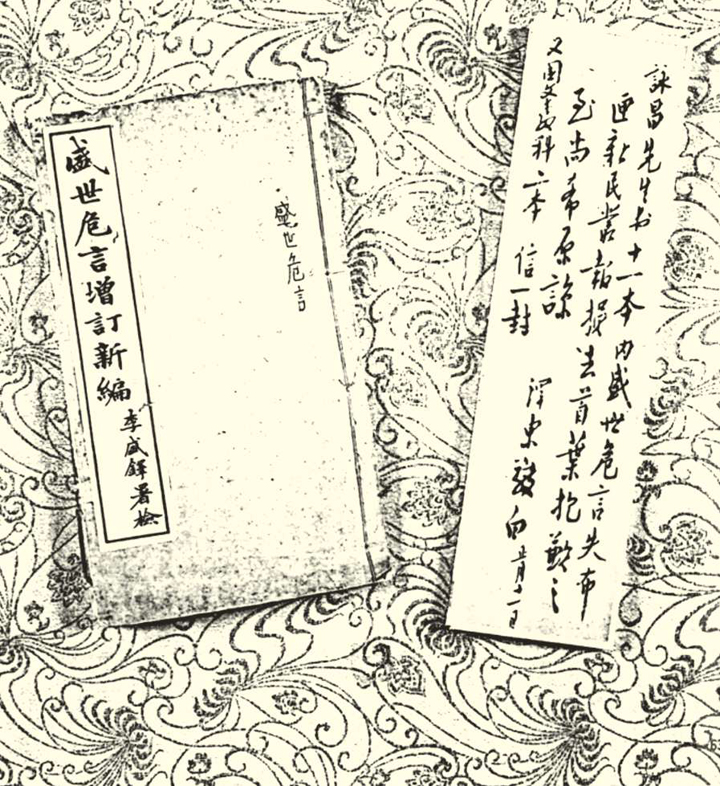 盛世危言
盛世危言增訂新編
李盛鐸署檢
詠昌先生书十一本内盛世危言失布
匣新民叢報損去首葉抱歉之
至尚希原諒 澤東敬白 正月十一日
又国文教科二本 信一封